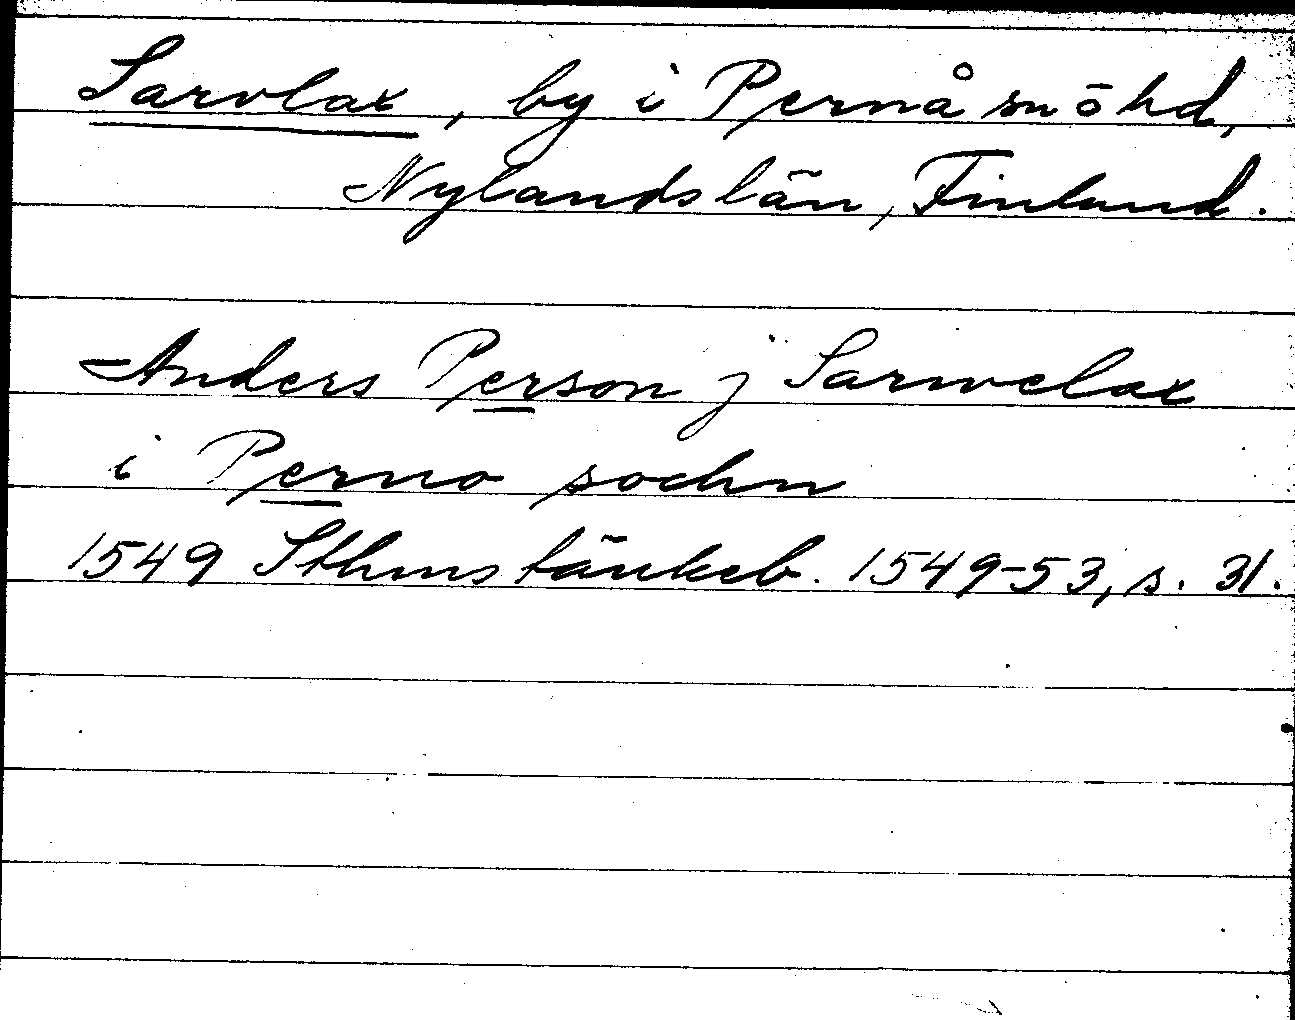 Sarvlax, by i Pernå sn ö hd,
Nylands län, Finland.
Anders Person j Sarwelax
i Perno sochn
1549 Sthms tänkeb. 1549-53, s. 31.